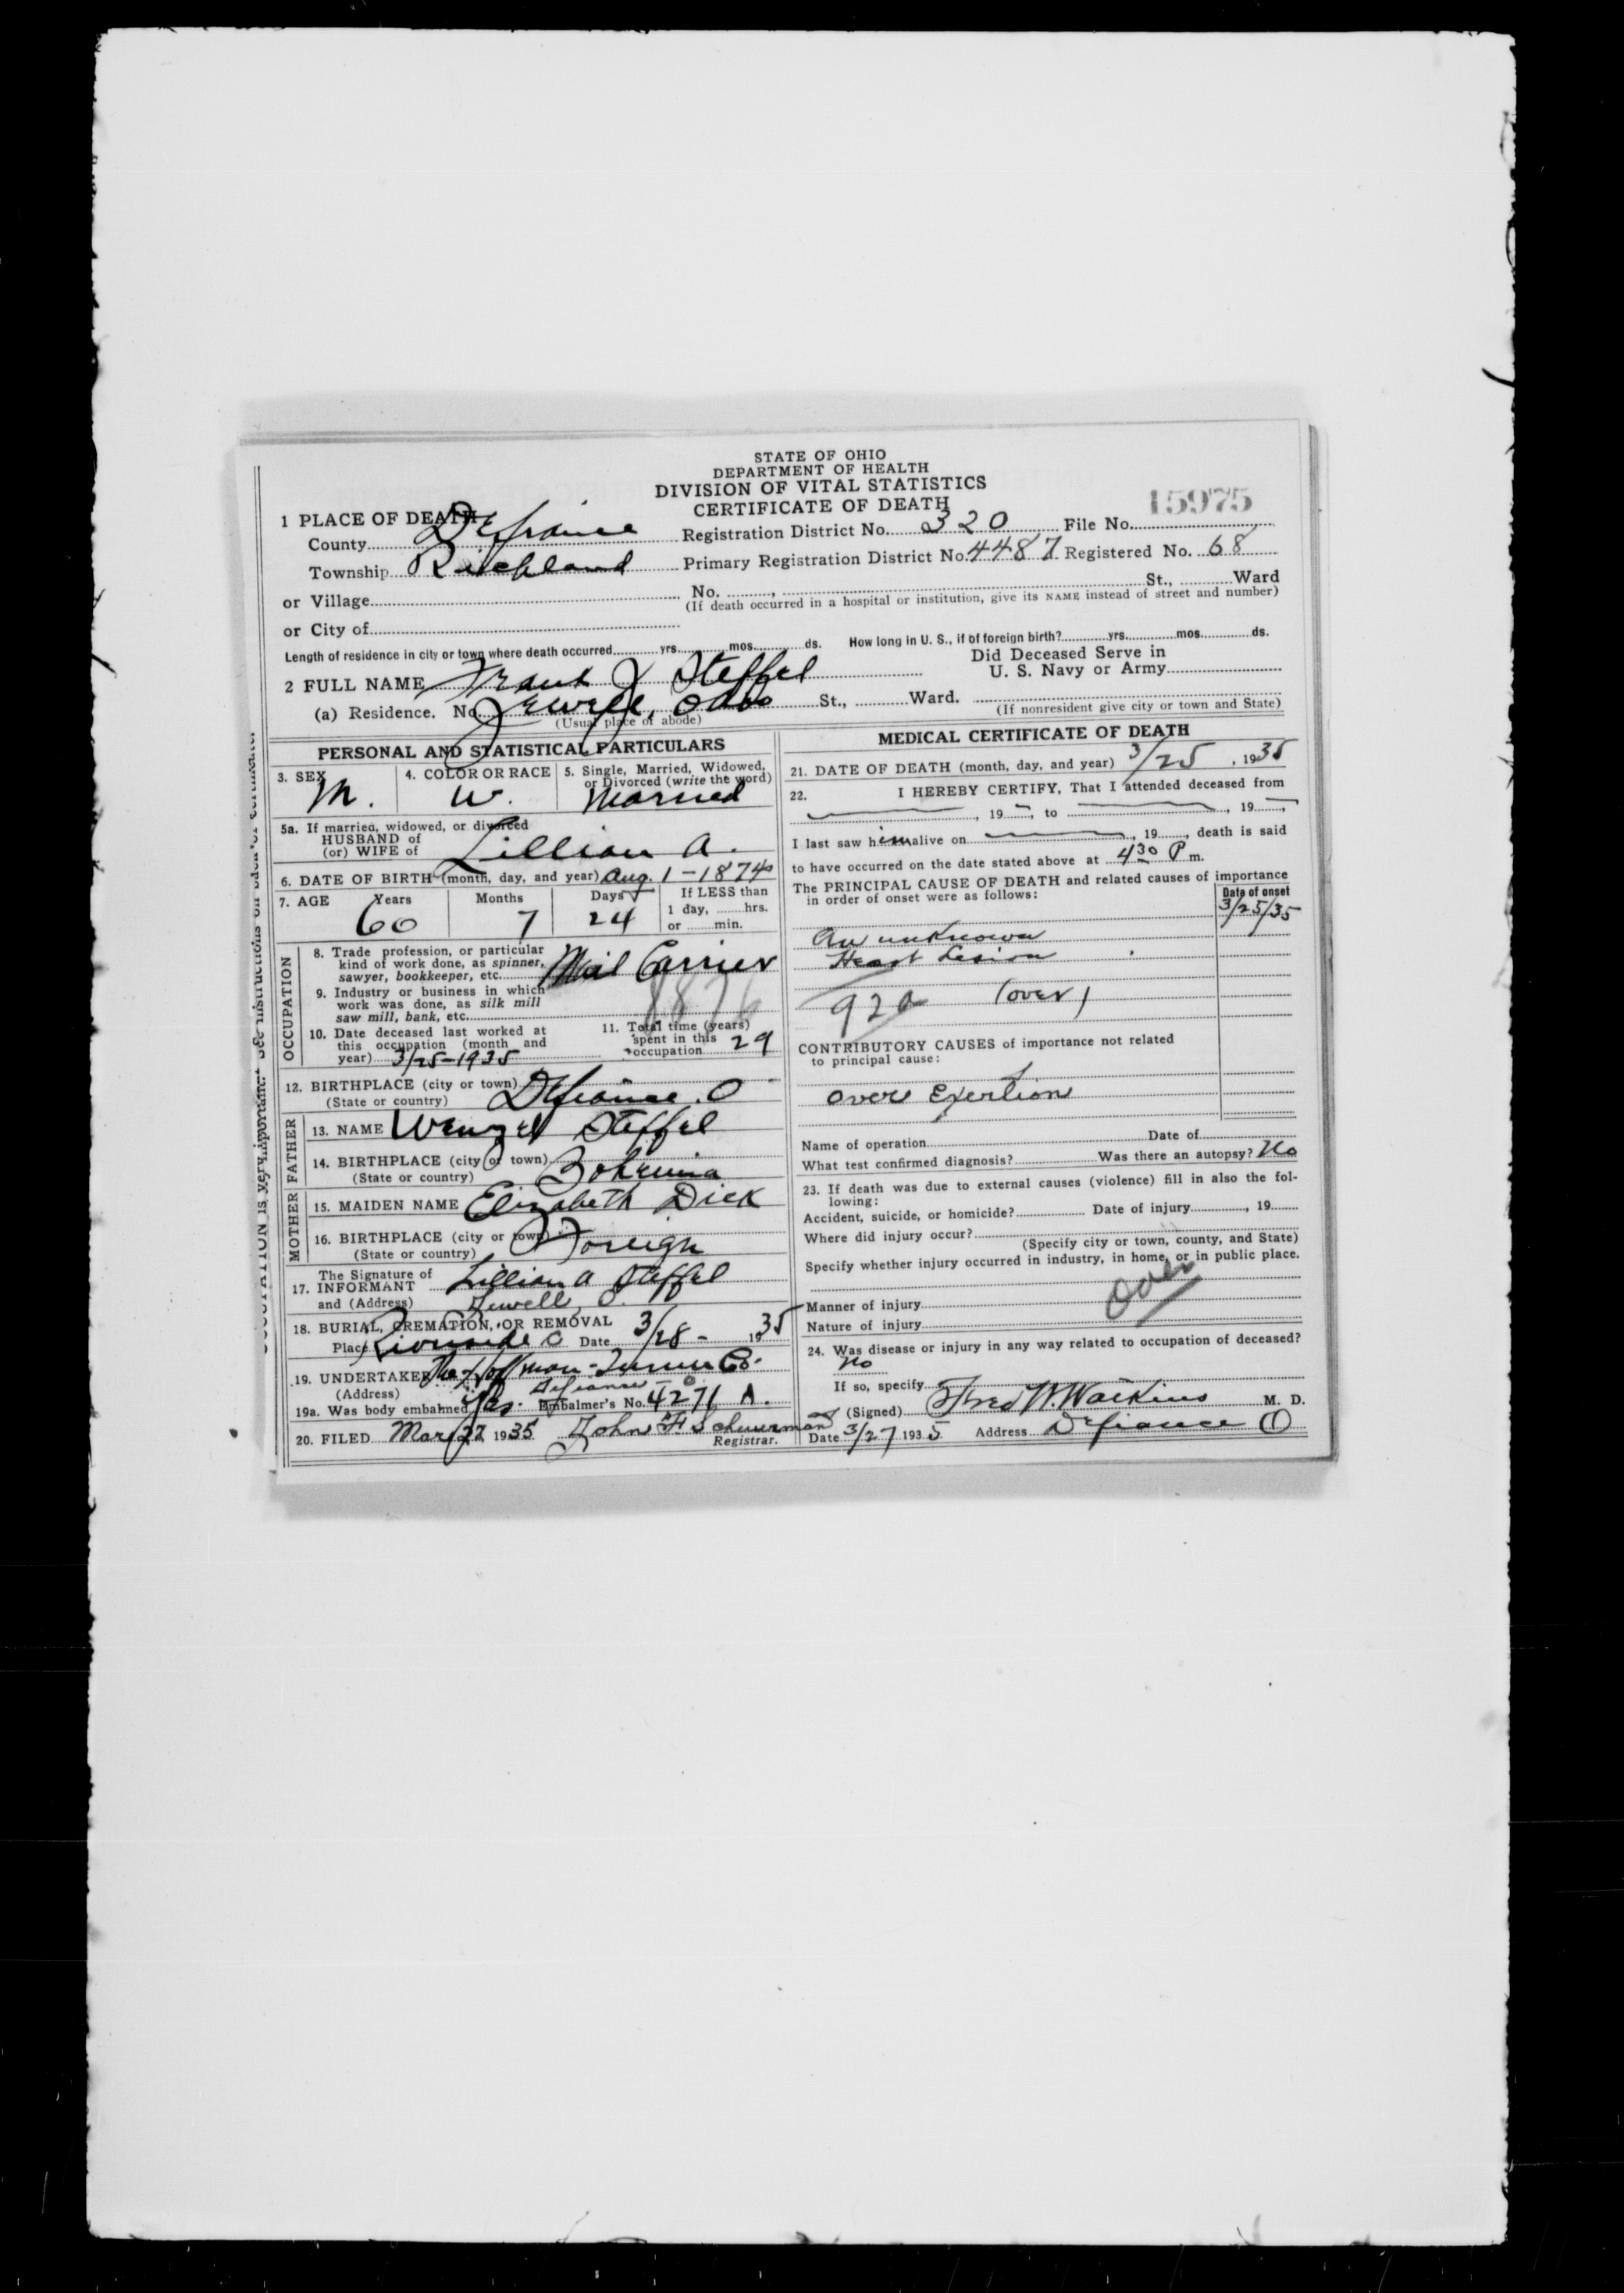 STATE OF OHIO
DEPARTMENT OF HEALTH
DIVISION OF VITAL STATISTICS
CERTIFICATE OF DEATH
15975
1 PLACE OF DEATH
County Defiance Registration District No. 320 File No.
Township Richland Primary Registration District No. 4487 Registered No. 68
or Village No. , St., Ward
(If death occurred in a hospital or institution, give its NAME instead of street and number)
or City of
Length of residence in city or town where death occurred yrs. mos. ds. How long in U. S., if of foreign birth? yrs. mos. ds.
Did Deceased Serve in
U. S. Navy or Army
2 FULL NAME Frank J Steffel
(a) Residence. No. Jewell, Ohio St., Ward.
(Usual place of abode) (If nonresident give city or town and State)
PERSONAL AND STATISTICAL PARTICULARS
3. SEX
M.
4. COLOR OR RACE
W.
5. Single, Married, Widowed,
or Divorced (write the word)
Married
5a. If married, widowed, or divorced
HUSBAND of
(or) WIFE of Lillian A.
6. DATE OF BIRTH (month, day, and year) Aug. 1 - 1874
7. AGE Years Months Days If LESS than
1 day, hrs.
or min.
60 7 24
OCCUPATION
8. Trade profession, or particular
kind of work done, as spinner,
sawyer, bookkeeper, etc. Mail Carrier
9. Industry or business in which
work was done, as silk mill
saw mill, bank, etc.
10. Date deceased last worked at
this occupation (month and
year) 3/25-1935
11. Total time (years)
spent in this
occupation 29
12. BIRTHPLACE (city or town)
(State or country) Defiance. O
FATHER
13. NAME Wenzel Steffel
14. BIRTHPLACE (city or town)
(State or country) Bohemia
MOTHER
15. MAIDEN NAME Elizabeth Dick
16. BIRTHPLACE (city or town)
(State or country) Foreign
The Signature of
17. INFORMANT Lillian A Steffel
and (Address) Jewell, O.
18. BURIAL, CREMATION, OR REMOVAL
Place Riverside C Date 3/28- 1935
19. UNDERTAKER
(Address) Defiance - O
19a. Was body embalmed Yes. Embalmer's No. 4271 A.
20. FILED Mar 27 1935 John F Schuerman
Registrar.
MEDICAL CERTIFICATE OF DEATH
21. DATE OF DEATH (month, day, and year) 3/25, 1935
22. I HEREBY CERTIFY, That I attended deceased from
, 19 , to , 19 ,
I last saw him alive on , 19 , death is said
to have occurred on the date stated above at 4 30 P m.
The PRINCIPAL CAUSE OF DEATH and related causes of importance
in order of onset were as follows:
Date of onset
3/25/35
An unknown
Heart Lesion
92a (over)
CONTRIBUTORY CAUSES of importance not related
to principal cause:
Over Exertion
Name of operation Date of
What test confirmed diagnosis? Was there an autopsy? No
23. If death was due to external causes (violence) fill in also the fol-
lowing:
Accident, suicide, or homicide? Date of injury , 19
Where did injury occur?
(Specify city or town, county, and State)
Specify whether injury occurred in industry, in home, or in public place.
Over
Manner of injury
Nature of injury
24. Was disease or injury in any way related to occupation of deceased?
No
If so, specify
(Signed) Fred W. Watkins M. D.
Date 3/27 1935 Address Defiance O